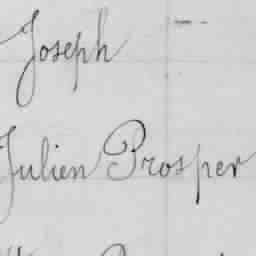 Joseph
Julien Prosper